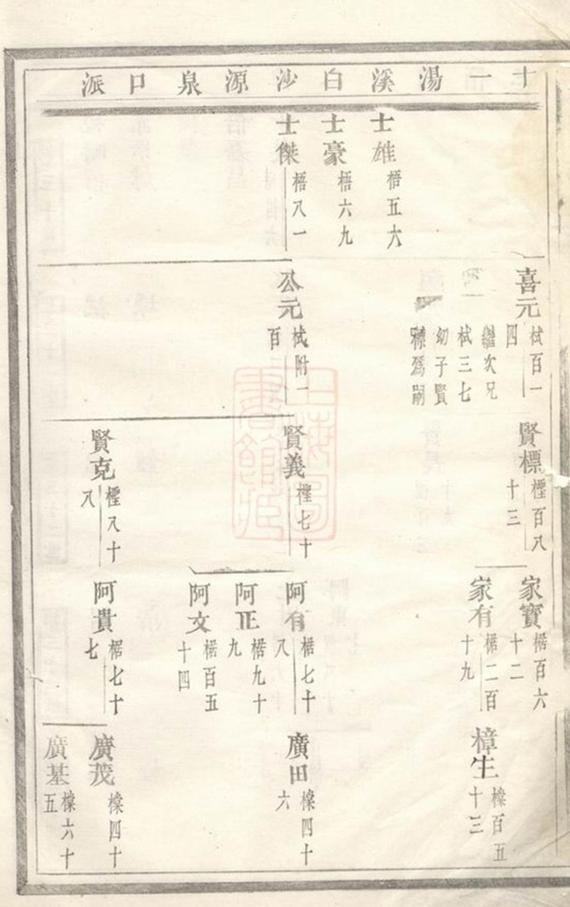 十一湯溪白沙源泉口派
士雄 梧五六
士豪 梧六九
士傑 梧八一
喜元 栻百一四
繼次兄栻三七幼子賢標爲嗣
公元 栻附一百
賢標 檉百八十三
賢義 檉七十
賢克 檉八十八
家寶 楛百六十二
家有 楛二百十九
阿有 楛七十八
阿正 楛九十九
阿文 楛百五十四
阿貴 楛七十七
樟生 檪百五十三
廣田 檪四十六
廣茂 檪四十
廣基 檪六十五
上海圖書館藏